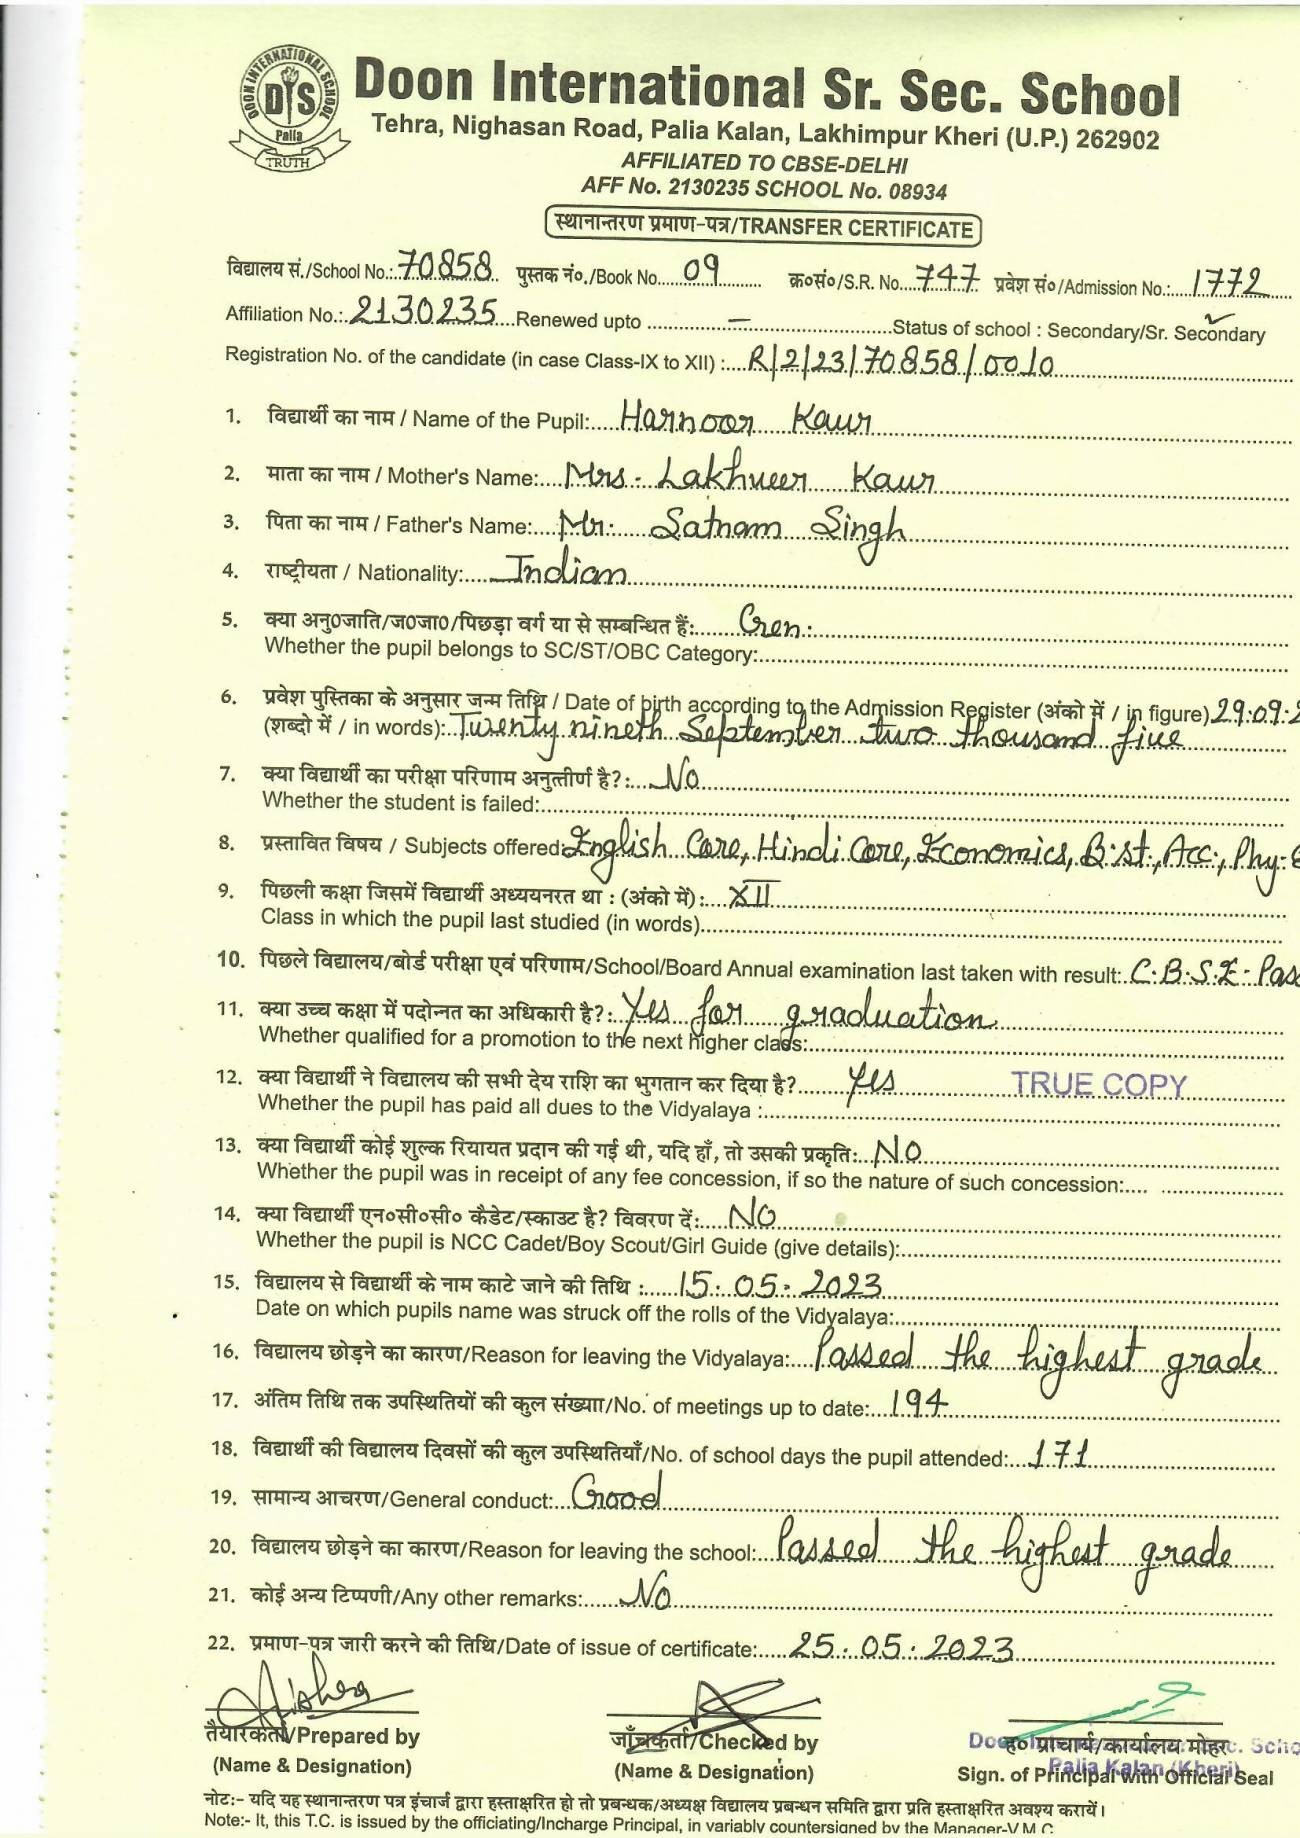 DOON INTERNATIONAL SCHOOL
DIS
Palia
TRUTH
Doon International Sr. Sec. School
Tehra, Nighasan Road, Palia Kalan, Lakhimpur Kheri (U.P.) 262902
AFFILIATED TO CBSE-DELHI
AFF No. 2130235 SCHOOL No. 08934
स्थानान्तरण प्रमाण-पत्र/TRANSFER CERTIFICATE
विद्यालय सं./School No.: 70858 पुस्तक नं०./Book No. 09 क्र०सं०/S.R. No. 747 प्रवेश सं०/Admission No.: 1772
Affiliation No.: 2130235 Renewed upto – Status of school : Secondary/Sr. Secondary
Registration No. of the candidate (in case Class-IX to XII) : R/2/23/70858/0010
1. विद्यार्थी का नाम / Name of the Pupil: Harnoor Kaur
2. माता का नाम / Mother's Name: Mrs. Lakhveer Kaur
3. पिता का नाम / Father's Name: Mr. Satnam Singh
4. राष्ट्रीयता / Nationality: Indian
5. क्या अनु०जाति/ज०जा०/पिछड़ा वर्ग या से सम्बन्धित हैं: Gen.
Whether the pupil belongs to SC/ST/OBC Category:
6. प्रवेश पुस्तिका के अनुसार जन्म तिथि / Date of birth according to the Admission Register (अंको में / in figure) 29.09.2
(शब्दो में / in words): Twenty nineth September two thousand five
7. क्या विद्यार्थी का परीक्षा परिणाम अनुत्तीर्ण है?: No
Whether the student is failed:
8. प्रस्तावित विषय / Subjects offered: English Core, Hindi Core, Economics, B.st., Acc., Phy.E
9. पिछली कक्षा जिसमें विद्यार्थी अध्ययनरत था : (अंको में) : XII
Class in which the pupil last studied (in words)
10. पिछले विद्यालय/बोर्ड परीक्षा एवं परिणाम/School/Board Annual examination last taken with result: C.B.S.E. Pass
11. क्या उच्च कक्षा में पदोन्नत का अधिकारी है?: Yes for graduation
Whether qualified for a promotion to the next higher class:
12. क्या विद्यार्थी ने विद्यालय की सभी देय राशि का भुगतान कर दिया है? Yes TRUE COPY
Whether the pupil has paid all dues to the Vidyalaya :
13. क्या विद्यार्थी कोई शुल्क रियायत प्रदान की गई थी, यदि हाँ, तो उसकी प्रकृति: NO
Whether the pupil was in receipt of any fee concession, if so the nature of such concession:
14. क्या विद्यार्थी एन०सी०सी० कैडेट/स्काउट है? विवरण दें: NO
Whether the pupil is NCC Cadet/Boy Scout/Girl Guide (give details):
15. विद्यालय से विद्यार्थी के नाम काटे जाने की तिथि : 15.05.2023
Date on which pupils name was struck off the rolls of the Vidyalaya:
16. विद्यालय छोड़ने का कारण/Reason for leaving the Vidyalaya: Passed the highest grade
17. अंतिम तिथि तक उपस्थितियों की कुल संख्या/No. of meetings up to date: 194
18. विद्यार्थी की विद्यालय दिवसों की कुल उपस्थितियाँ/No. of school days the pupil attended: 171
19. सामान्य आचरण/General conduct: Good
20. विद्यालय छोड़ने का कारण/Reason for leaving the school: Passed the highest grade
21. कोई अन्य टिप्पणी/Any other remarks: No
22. प्रमाण-पत्र जारी करने की तिथि/Date of issue of certificate: 25.05.2023
तैयारकर्ता/Prepared by जाँचकर्ता/Checked by ह० प्राचार्य/कार्यालय मोहर
(Name & Designation) (Name & Designation) Sign. of Principal with Official Seal
Palia Kalan (Kheri)
नोट:- यदि यह स्थानान्तरण पत्र इंचार्ज द्वारा हस्ताक्षरित हो तो प्रबन्धक/अध्यक्ष विद्यालय प्रबन्धन समिति द्वारा प्रति हस्ताक्षरित अवश्य करायें।
Note:- It, this T.C. is issued by the officiating/Incharge Principal, in variably countersigned by the Manager-V.M.C.